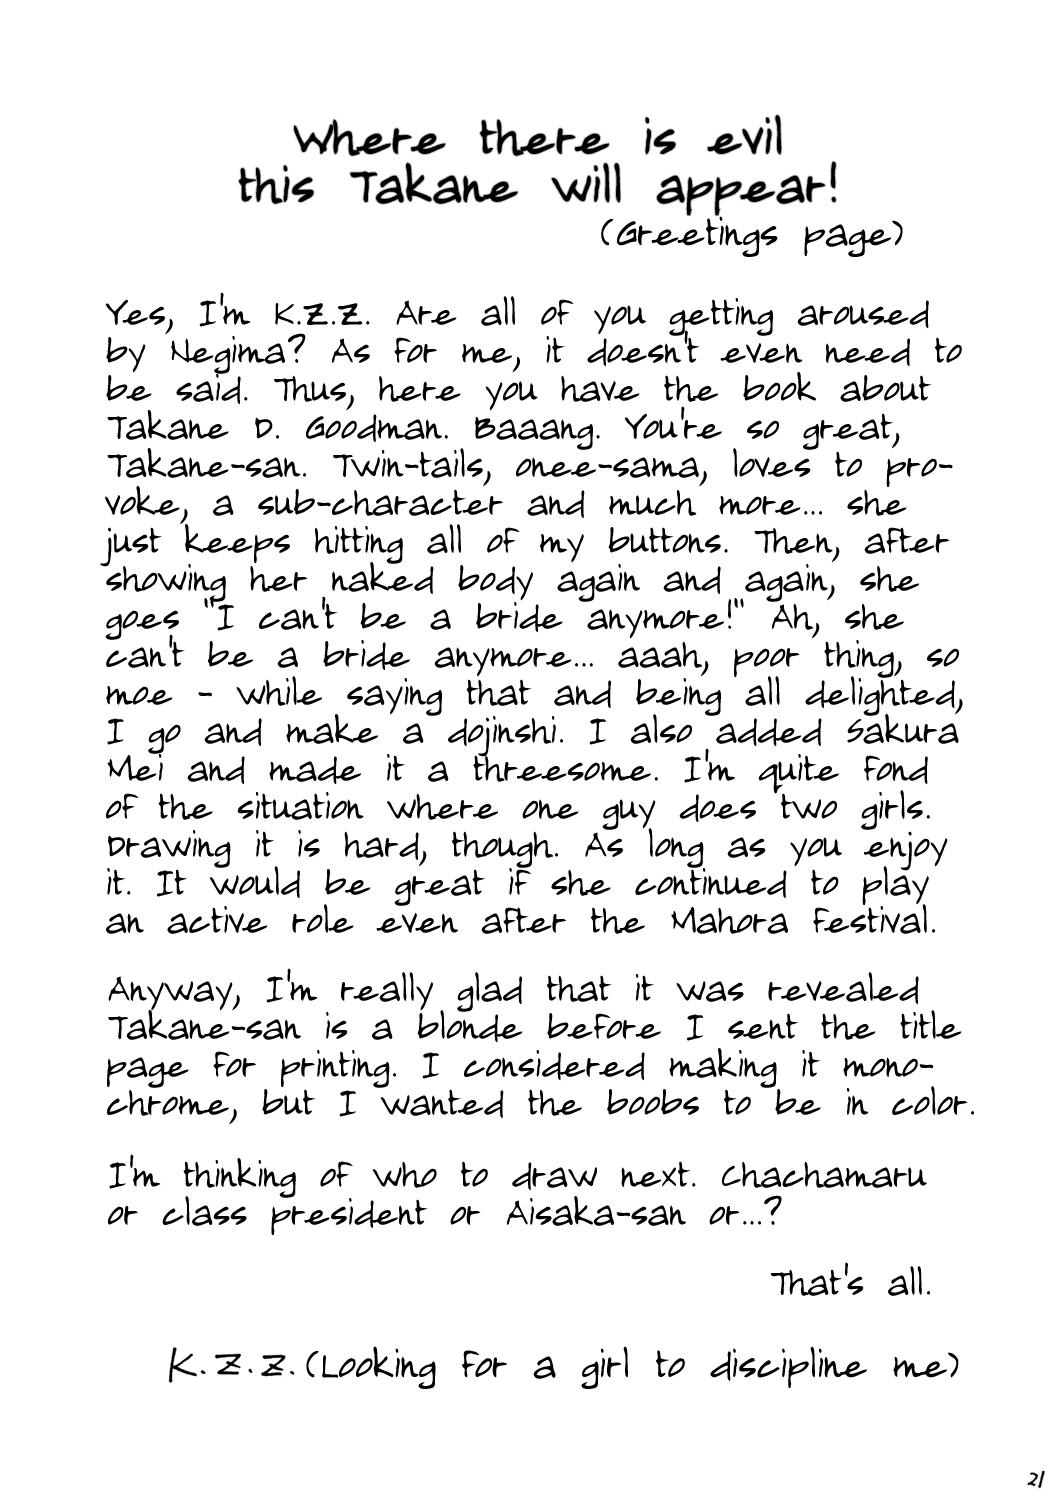 Where there is evil
this Takane will appear!
(Greetings page)
Yes, I'm K.Z.Z. Are all of you getting aroused
by Negima? As for me, it doesn't even need to
be said. Thus, here you have the book about
Takane D. Goodman. Baaang. You're so great,
Takane-san. Twin-tails, onee-sama, loves to pro-
voke, a sub-character and much more... she
just keeps hitting all of my buttons. Then, after
showing her naked body again and again, she
goes "I can't be a bride anymore!" Ah, she
can't be a bride anymore... aaah, poor thing, so
moe - while saying that and being all delighted,
I go and make a dojinshi. I also added Sakura
Mei and made it a threesome. I'm quite fond
of the situation where one guy does two girls.
Drawing it is hard, though. As long as you enjoy
it. It would be great if she continued to play
an active role even after the Mahora Festival.
Anyway, I'm really glad that it was revealed
Takane-san is a blonde before I sent the title
page for printing. I considered making it mono-
chrome, but I wanted the boobs to be in color.
I'm thinking of who to draw next. Chachamaru
or class president or Aisaka-san or...?
That's all.
K.Z.Z.(Looking for a girl to discipline me)
21